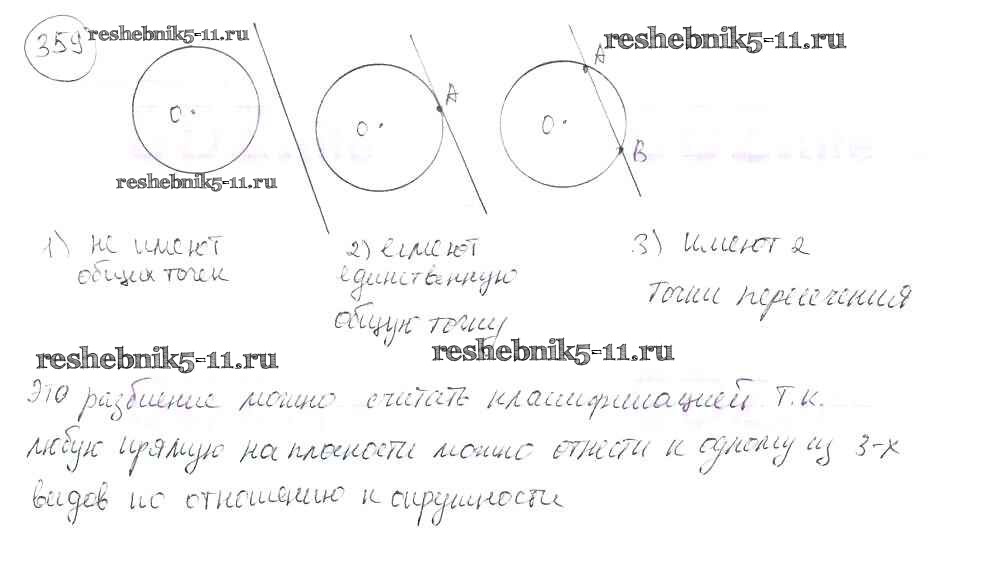 359 reshebnik5-11.ru reshebnik5-11.ru
O A O A O B
reshebnik5-11.ru
1) не имеют 2) имеют 3) имеют 2
общих точек единственную точки пересечения
общую точку
reshebnik5-11.ru reshebnik5-11.ru
Это разбиение можно считать классификацией т.к.
любую прямую на плоскости можно отнести к одному из 3-х
видов по отношению к окружности